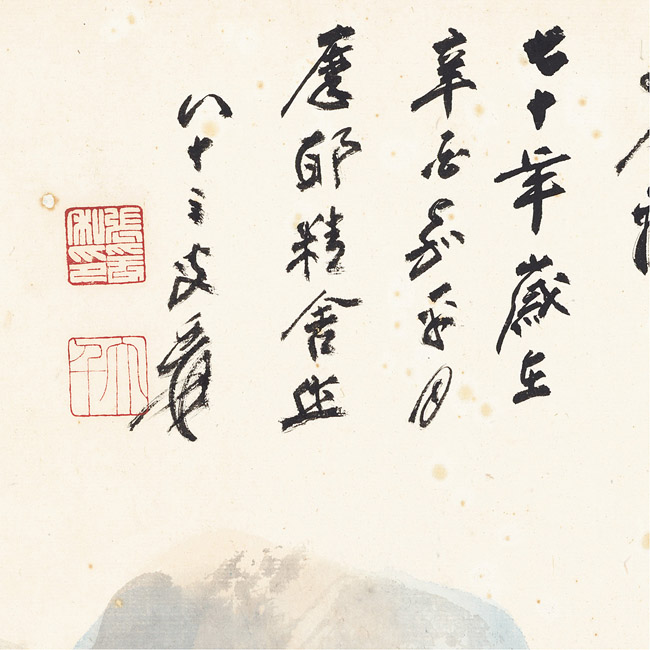 七十年歲在
辛酉嘉平月
摩耶精舍
八十三叟爰
張爰私印
大千